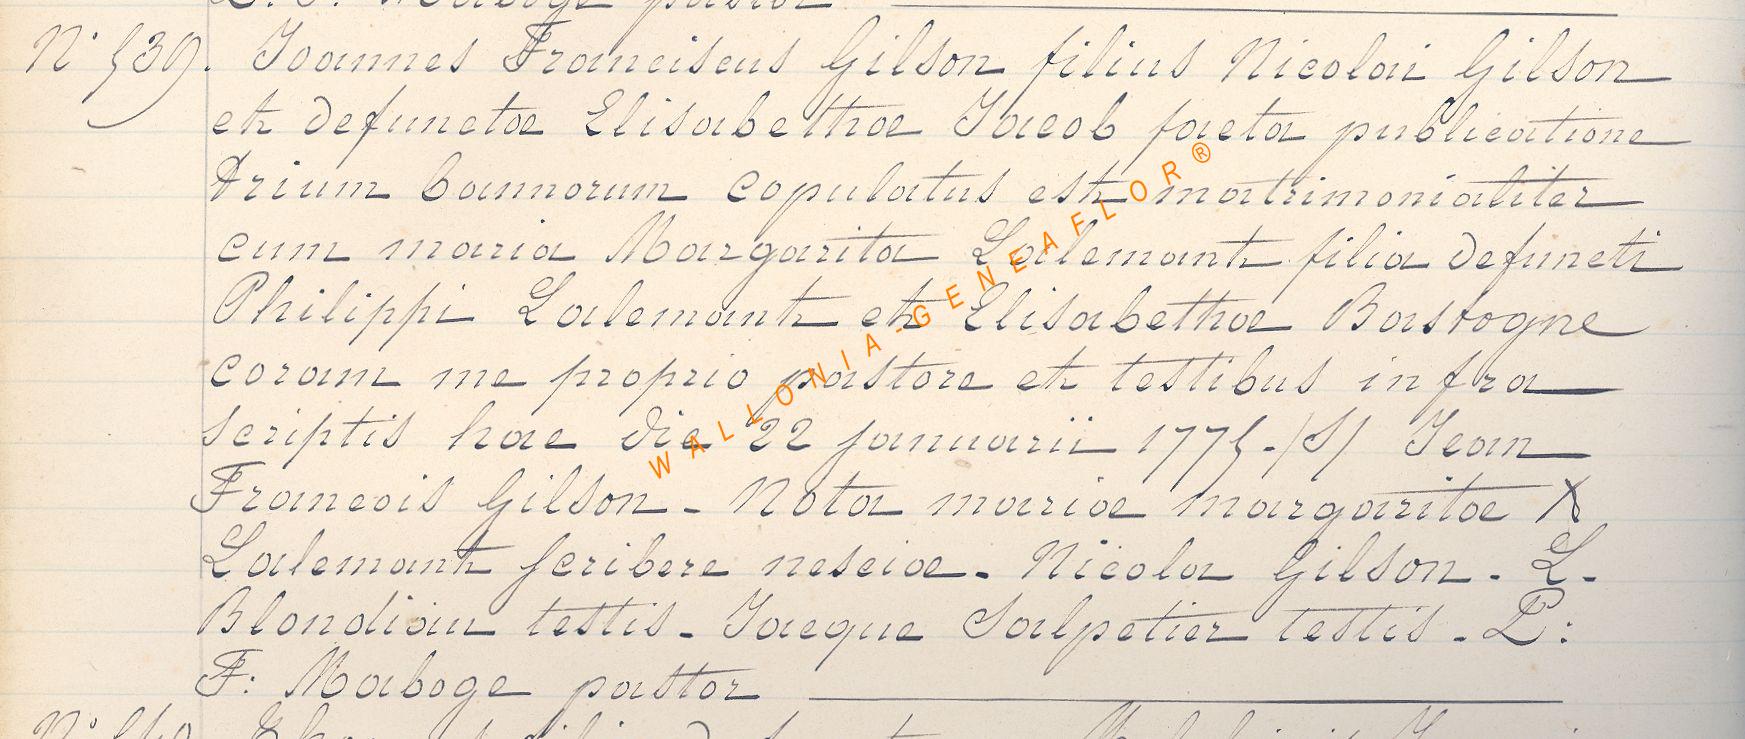 F. Maboge pastor
N° 539. Joannes Franciscus Gilson filius Nicolai Gilson
et defunctae Elisabethae Jacob facta publicatione
trium bannorum copulatus est matrimonialiter
cum maria Margarita Lalemant filia defuncti
Philippi Lalemant et Elisabethae Bastogne
coram me proprio pastore et testibus infra
scriptis hac die 22 januarii 1775-/S/ Jean
Francois Gilson - Nota mariae margaritae X
Lalemant scribere nesciae - Nicola Gilson - L.
Blondiau testis - Jacque Salpetier testis - L:
F: Maboge pastor
N° 540
WALLONIA-GENEAFLOR®